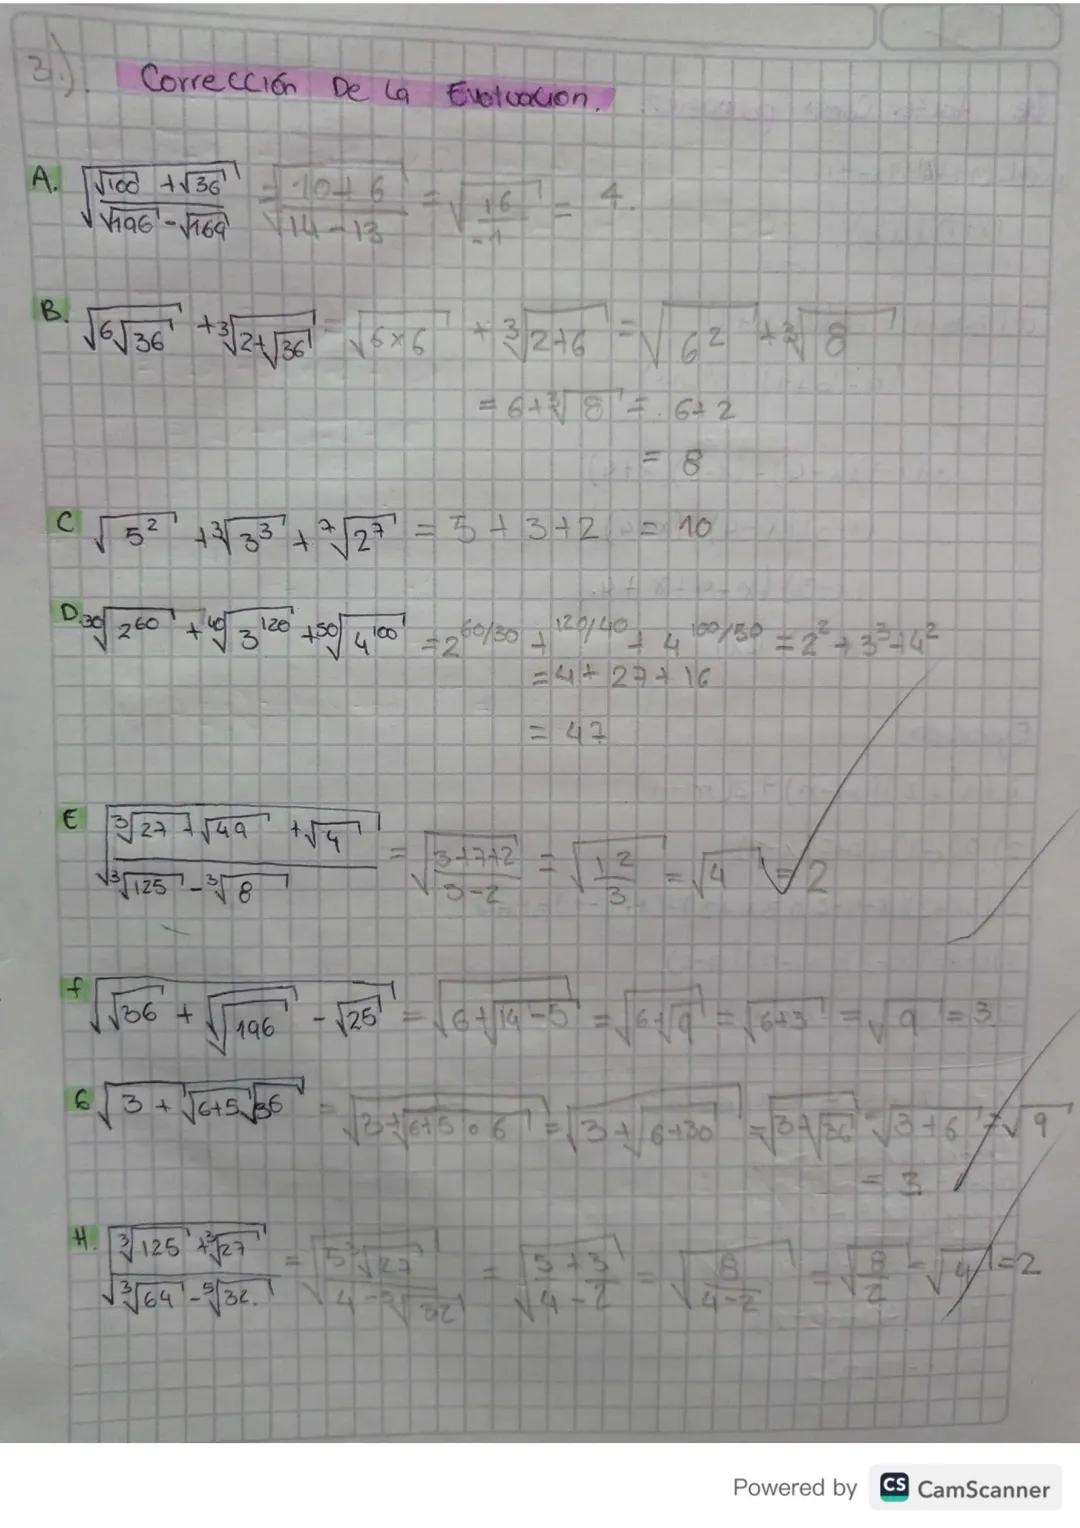 3.). Corrección De La Evaluacion.
A. √((√100 + √36)/(√196 - √169)) = √((10+6)/(14-13)) = √(16/-1) = 4.
B. √(6√36) + ∛(2+√36) = √(6x6) + ∛(2+6) = √(6²) + ∛8
= 6+∛8 = 6+2
= 8
C √(5²) + ∛(3³) + ⁷√(2⁷) = 5 + 3 + 2 = 10
D. ³⁰√(2⁶⁰) + ⁴⁰√(3¹²⁰) + ⁵⁰√(4¹⁰⁰) = 2^60/30 + ^120/40 + 4^100/50 = 2² + 3³ + 4²
= 4 + 27 + 16
= 47
E √((∛27 + √49 + √4)/(∛125 - ∛8)) = √((3+7+2)/(5-2)) = √(12/3) = √4 = 2
f √(√36 + √(√196 - √25)) = √(6+√(14-5)) = √(6+√9) = √(6+3) = √9 = 3
G √(3 + √(6+5√36)) = √(3+√(6+5∘6)) = √(3+√(6+30)) = √(3+√36) = √(3+6) = √9
= 3
H. √((∛125 + ∛27)/(∛64 - ⁵√32.)) = √((5 ∛27)/(4 - ⁵√32)) = √((5+3)/(4-2)) = √(8/(4-2)) = √(8/2) = √4 = 2
Powered by CS CamScanner